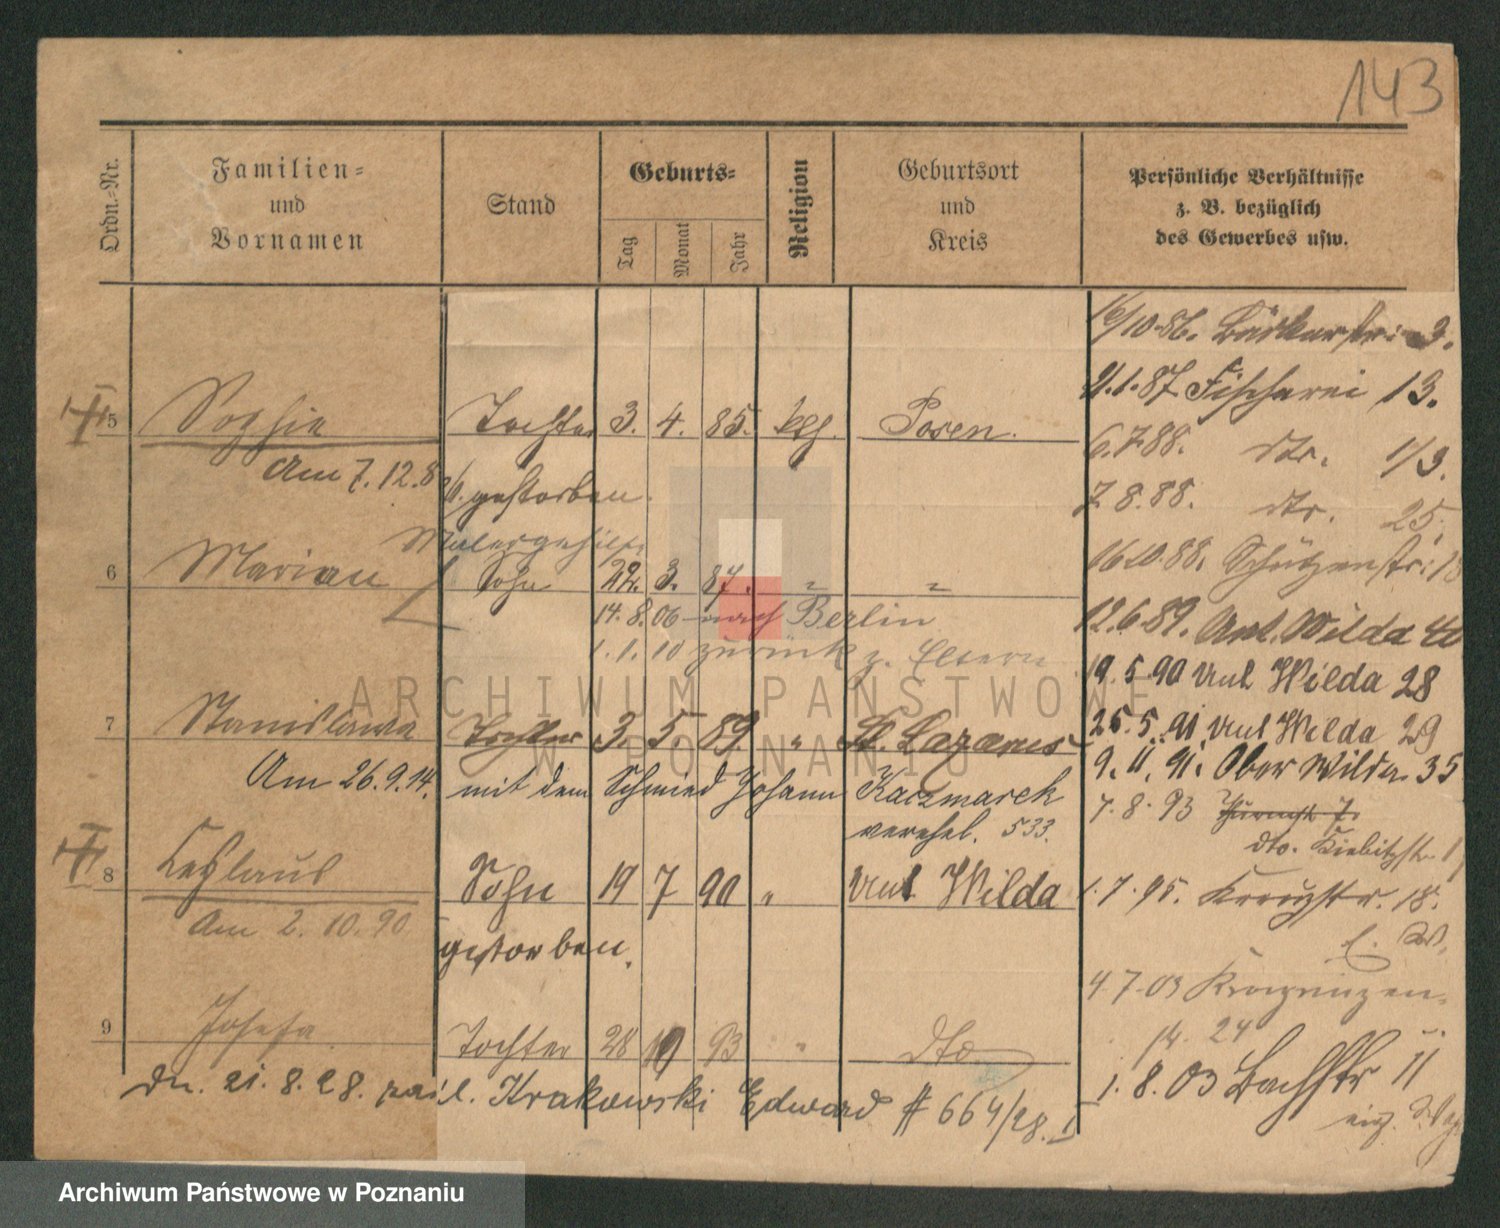 143
Ordn.-Nr.
Familien-
und
Vornamen
Stand
Geburts-
Tag
Monat
Jahr
Religion
Geburtsort
und
Kreis
Persönliche Verhältnisse
z. B. bezüglich
des Gewerbes usw.
5 Sophie Tochter 3. 4. 85. kth. Posen.
Am 7. 12. 8 gestorben.
Malergehilfe
6 Marian Sohn 22. 3. 87. " "
14. 8. 06 nach Berlin
1. 1. 10 zurück z. Eltern
7 Stanislawa Tochter 3. 5. 89. " St. Lazarus
Am 26. 9. 14. mit dem Schmied Johann Kaczmarek
verehel. 533.
8 Ceslaus Sohn 19 7 90 " Unt Wilda
Am 2. 10. 90 gestorben.
9 Josefa Tochter 28 93 " dto
dn. 21. 8. 28. Krakowski Edward # 664/28. I
16/10.86. 3.
21.1.87 Fischerei 13.
6.7.88. dto. 1/3.
7.8.88. dto. 25.
16.10.88. Schützenstr:
12.6.89. Unt. Wilda 40
19.5.90 Unt Wilda 28
25.5.91. Unt Wilda 29
9.11.91. Ober Wilda 35
7.8.93
dto. Kiebitzstr.
1.7.95. Kreuzstr. 18.
4.7.03 Kronprinzen-
str. 24
1.8.03 Bachstr 11
ARCHIWUM PAŃSTWOWE
W POZNANIU
Archiwum Państwowe w Poznaniu